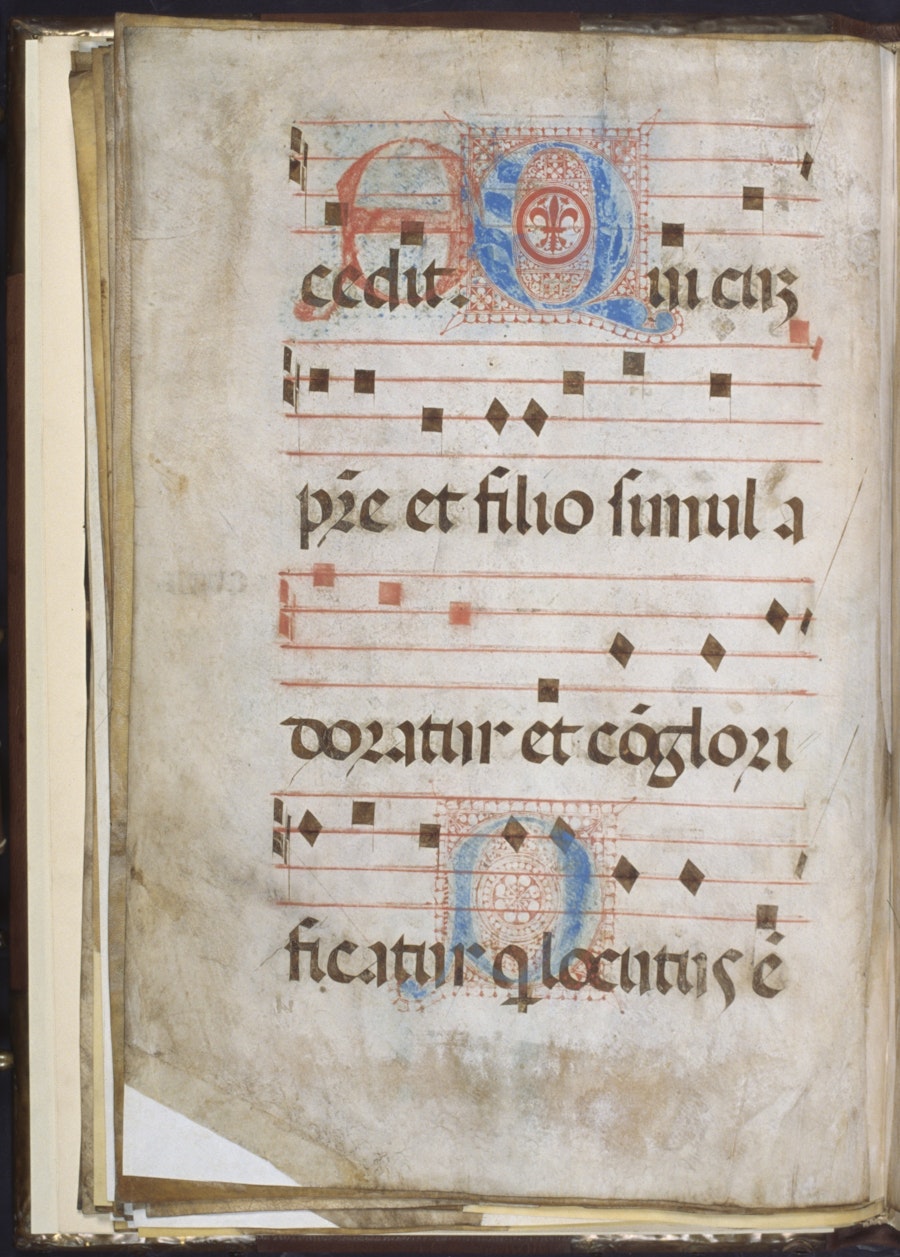 cedit. Qui cuz
pr̃e et filio simul a
doratur et cõglori
ficatur q̇ locutus ẽ